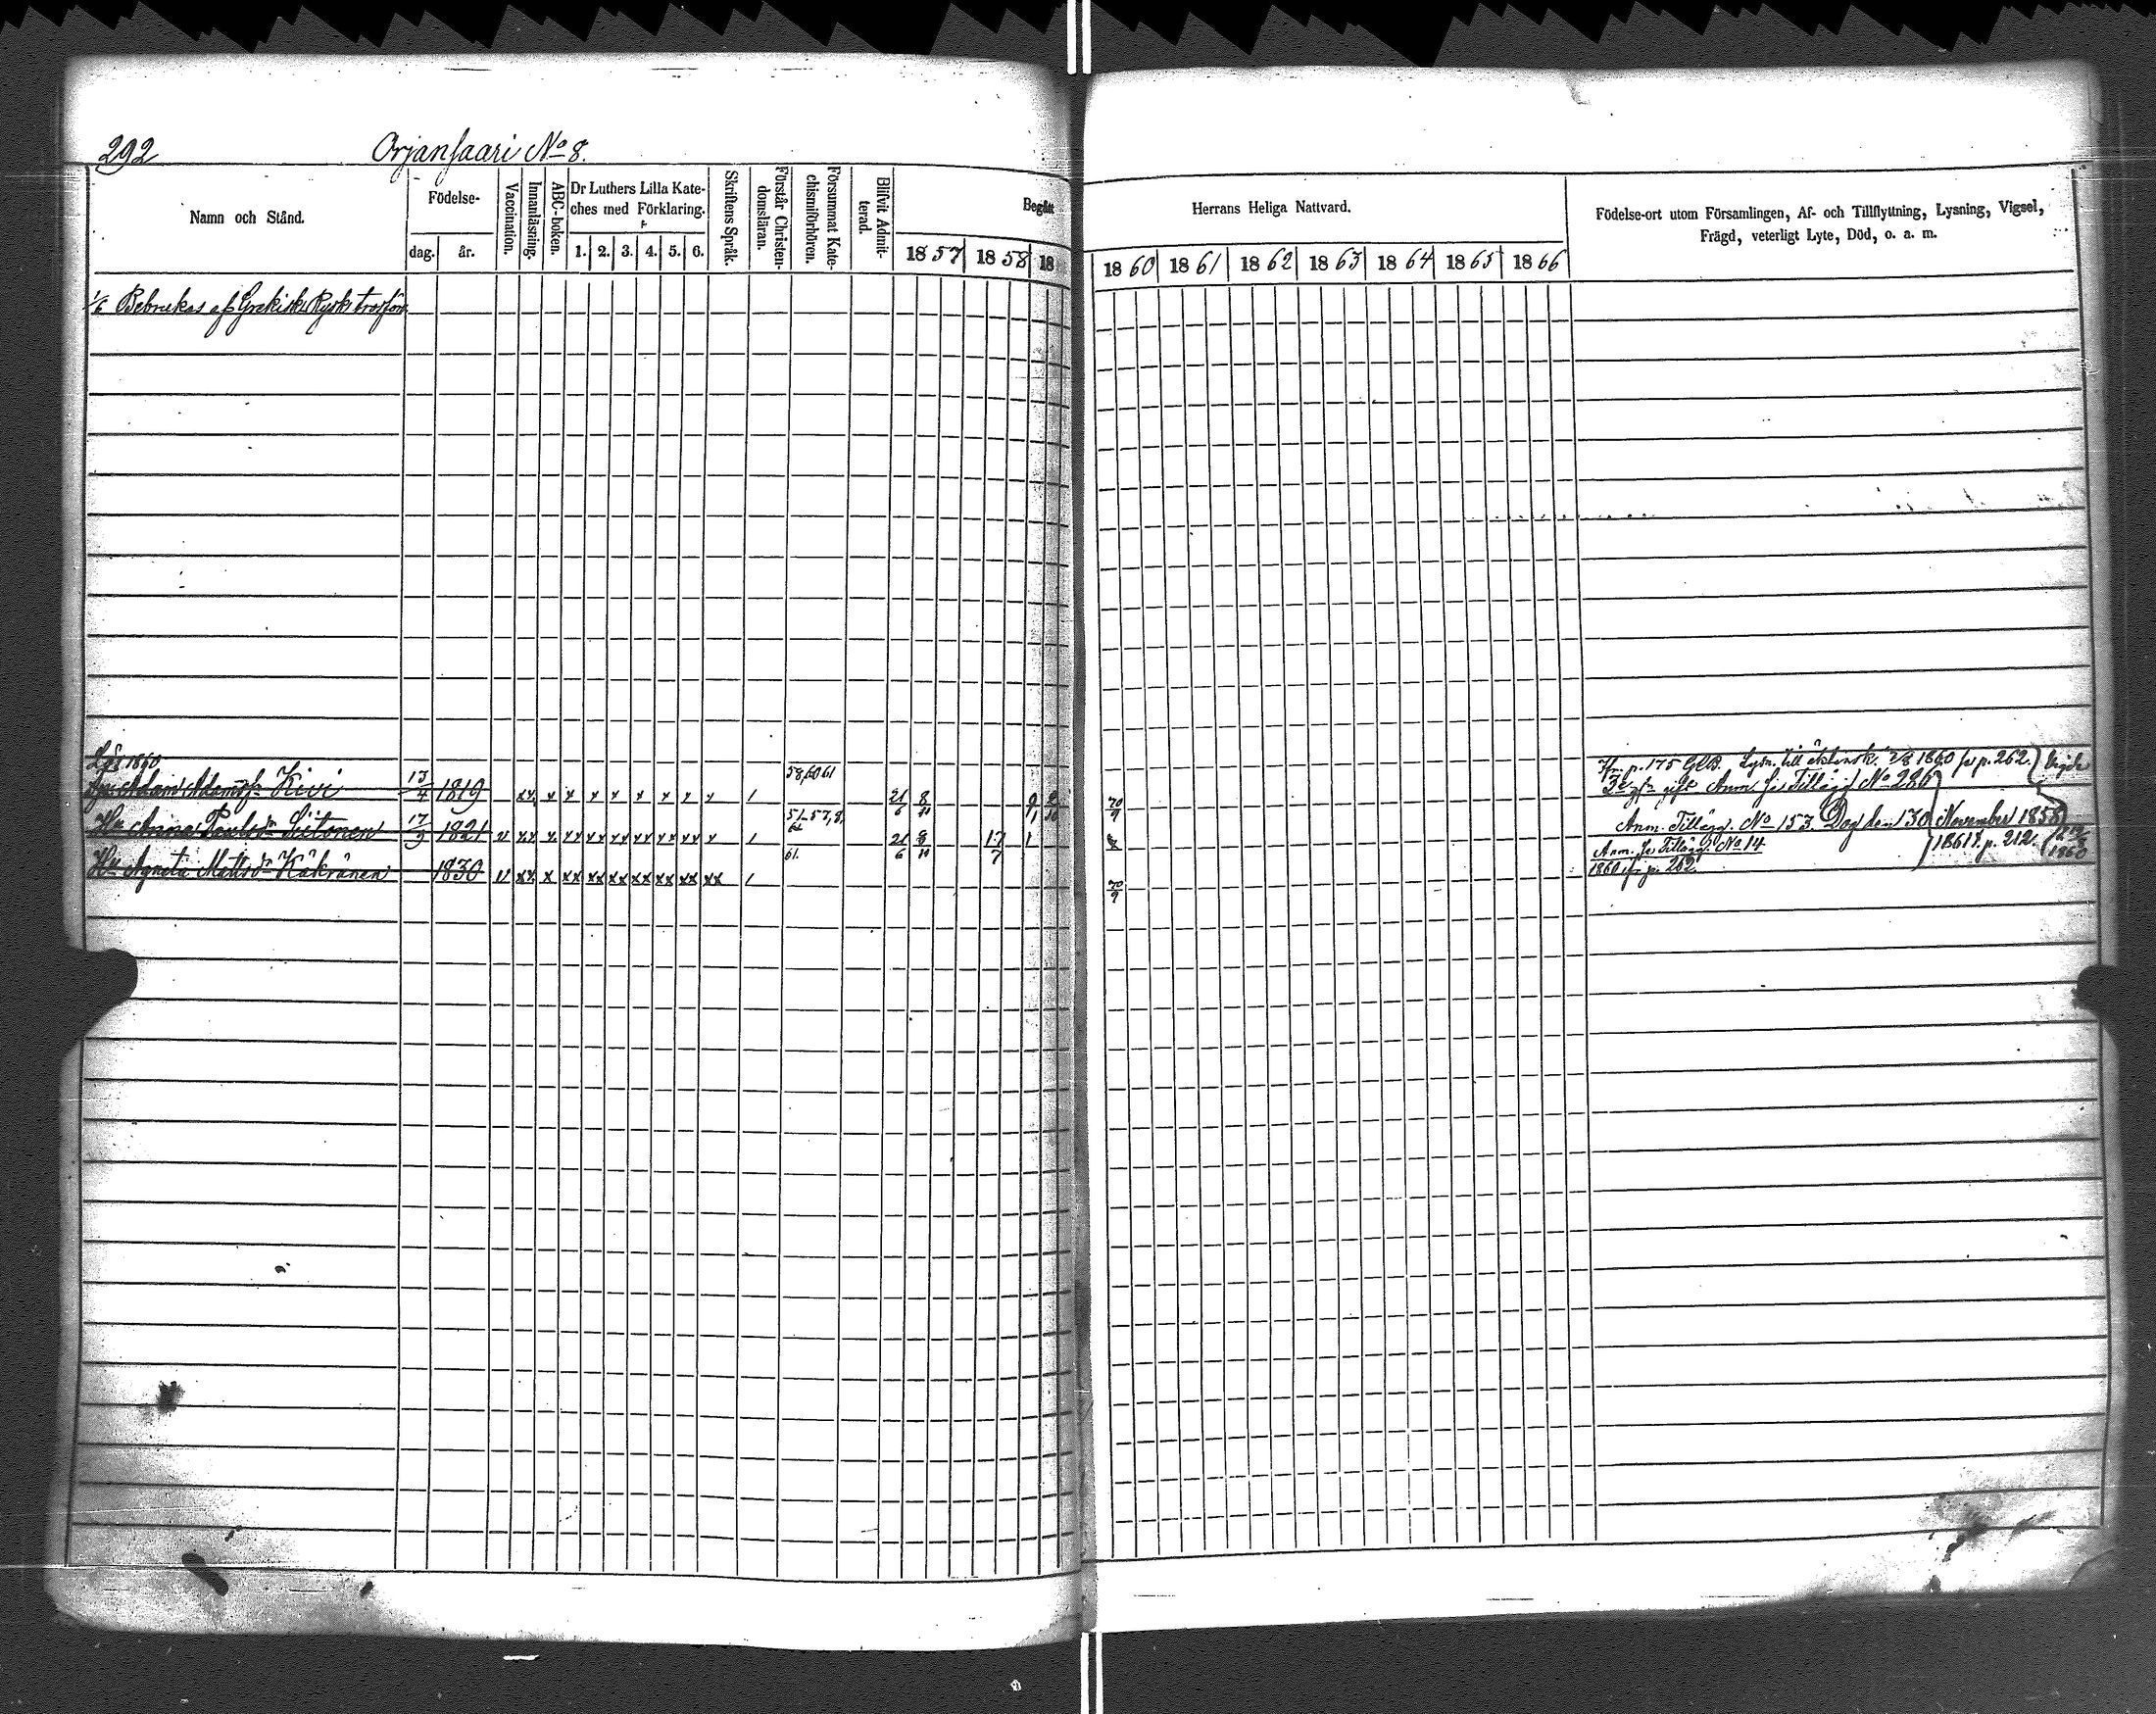 292 Orjansaari No 8.
Namn och Stånd.
Födelse-
dag. år.
Vaccination.
Innanläsning.
ABC-boken.
Dr Luthers Lilla Kate-
ches med Förklaring.
1. 2. 3. 4. 5. 6.
Skriftens Språk.
Förstår Christen-
domsläran.
Försummat Kate-
chismiförhören.
Blifvit Admit-
terad.
Begått
1857 1858 18
Herrans Heliga Nattvard.
1860 1861 1862 1863 1864 1865 1866
Födelse-ort utom Församlingen, Af- och Tillflyttning, Lysning, Vigsel,
Frägd, veterligt Lyte, Död, o. a. m.
1/6 Bebrukas af Grekisk Rysk trosförv.
1860
58,60 61
Fr. p. 175 GlB. Lysn. till äktensk. 1860 p. 262. Vigde
Adam Adamsn Kivi 13/4 1819 xx x x x x x x x x 1 21/6 8/11 70/9
gift Anm. se Tillägg No 286
51-57,8,
Hu Anna Paulsdr Siitonen 17/9 1821 v xx x xx xx xx xx xx xx x 1 21/6 8/11 17/7 1
Anm. Tillägg. No 153. Dog den 130 November 1858
61.
Anm. se Tillägg. No 14 1861 f. p. 212. 1860
Hu Agneta Mattsdr Käkränen 1830 v xx x xx xx xx xx xx xx xx 1 70/9
1860 fr p. 262.